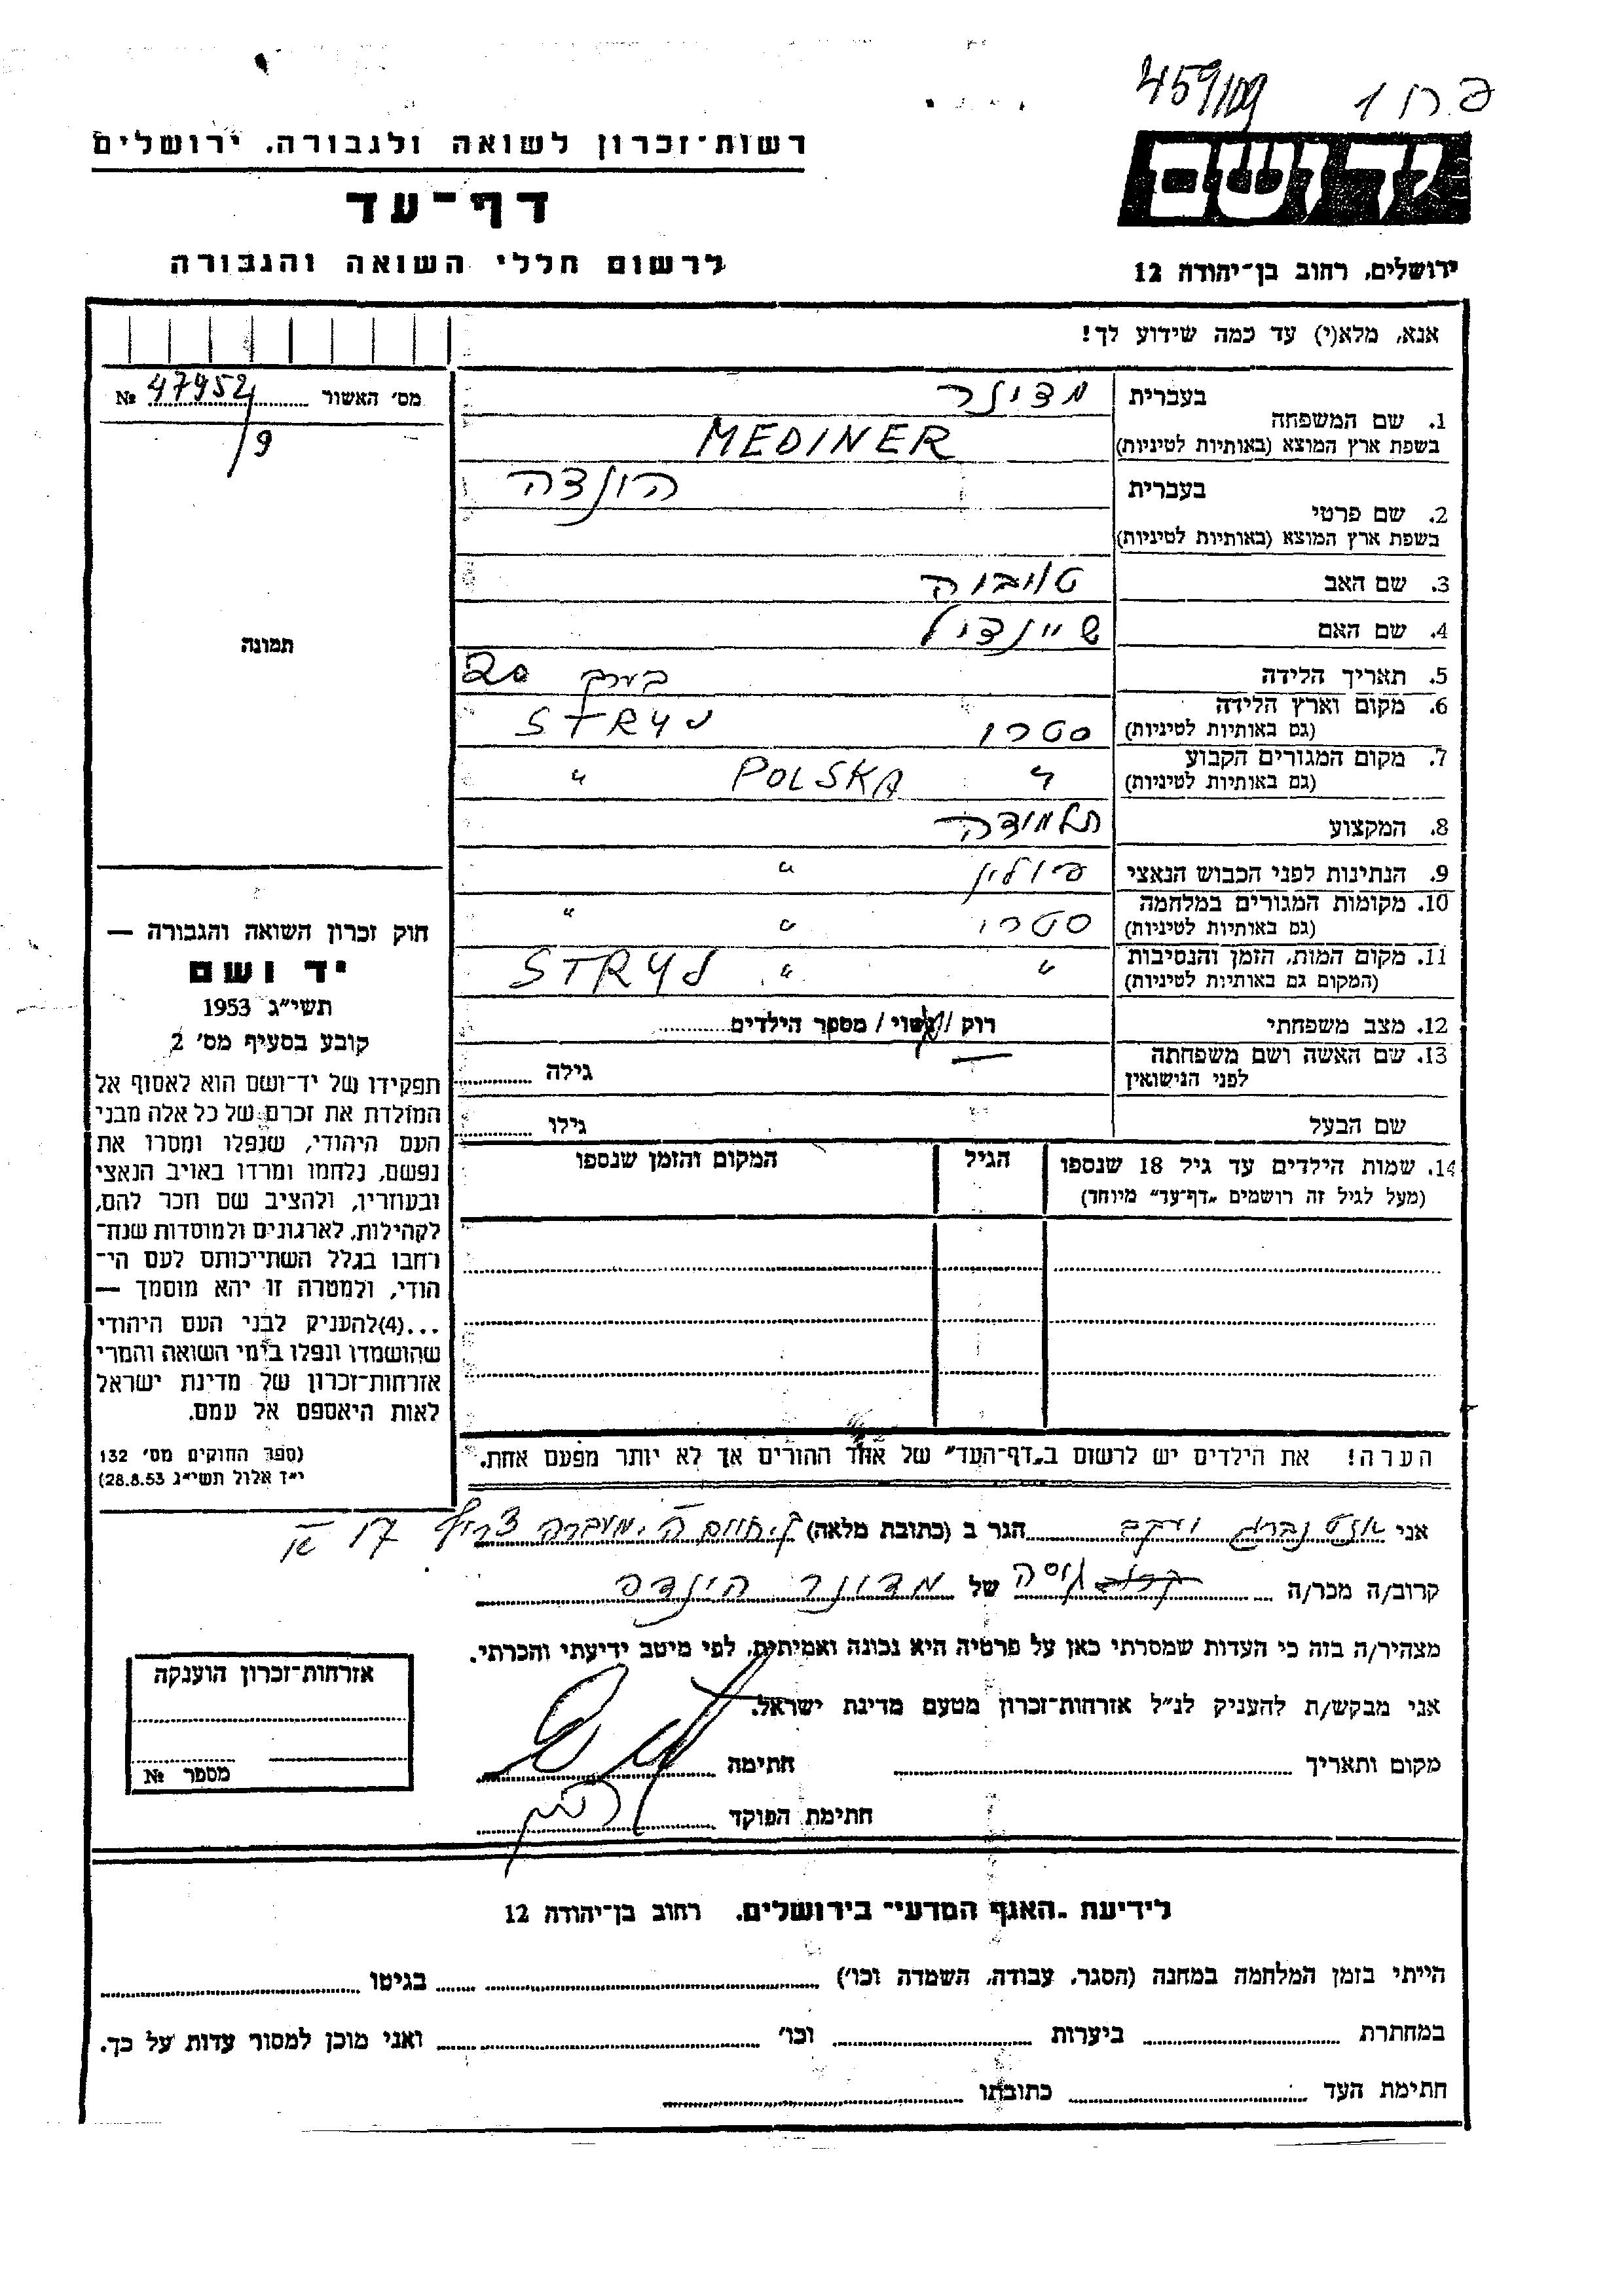 459/109 פרח 1
יד ושם
רשות־זכרון לשואה ולגבורה. ירושלים
דף־עד
לרשום חללי השואה והגבורה
ירושלים, רחוב בן־יהודה 12
אנא, מלא(י) עד כמה שידוע לך!
מס׳ האשור 47952 №
9
תמונה
1. שם המשפחה
בעברית מדינר
בשפת ארץ המוצא (באותיות לטיניות) MEDINER
2. שם פרטי
בעברית הונדה
בשפת ארץ המוצא (באותיות לטיניות)
3. שם האב
4. שם האם שיינדיל
5. תאריך הלידה בערך 20
6. מקום וארץ הלידה
(גם באותיות לטיניות) סטרי STRYJ
7. מקום המגורים הקבוע
(גם באותיות לטיניות) " POLSKA "
8. המקצוע תלמידה
9. הנתינות לפני הכבוש הנאצי פולין "
10. מקומות המגורים במלחמה
(גם באותיות לטיניות) סטרי " "
11. מקום המות, הזמן והנסיבות
(המקום גם באותיות לטיניות) " " STRYJ
12. מצב משפחתי רוק / נשוי / מספר הילדים
13. שם האשה ושם משפחתה
לפני הנישואין גילה
שם הבעל גילו
14. שמות הילדים עד גיל 18 שנספו הגיל המקום והזמן שנספו
(מעל לגיל זה רושמים „דף־עד״ מיוחד)
חוק זכרון השואה והגבורה —
יד ושם
תשי״ג 1953
קובע בסעיף מס׳ 2
תפקידו של יד־ושם הוא לאסוף אל
המולדת את זכרם של כל אלה מבני
העם היהודי, שנפלו ומסרו את
נפשם, נלחמו ומרדו באויב הנאצי
ובעוזריו, ולהציב שם וזכר להם,
לקהילות, לארגונים ולמוסדות שנח־
רבו בגלל השתייכותם לעם הי־
הודי, ולמטרה זו יהא מוסמך —
...(4)להעניק לבני העם היהודי
שהושמדו ונפלו בימי השואה והמרי
אזרחות־זכרון של מדינת ישראל
לאות היאספם אל עמם.
(ספר החוקים מס׳ 132
י״ז אלול תשי״ג 28.8.53)
הערה! את הילדים יש לרשום ב„דף־העד״ של אחד ההורים אך לא יותר מפעם אחת.
אני יעקב הגר ב (כתובת מלאה) ק. חיים ה. מעברה צריף 17
קרוב/ה מכר/ה גיסה של מדינר הינדה
מצהיר/ה בזה כי העדות שמסרתי כאן על פרטיה היא נכונה ואמיתית, לפי מיטב ידיעתי והכרתי.
אני מבקש/ת להעניק לנ״ל אזרחות־זכרון מטעם מדינת ישראל.
מקום ותאריך חתימה
חתימת הפוקד
אזרחות־זכרון הוענקה
מספר №
לידיעת „האגף המדעי״ בירושלים. רחוב בן־יהודה 12
הייתי בזמן המלחמה במחנה (הסגר, עבודה, השמדה וכו׳) בגיטו
במחתרת ביערות וכו׳ ואני מוכן למסור עדות על כך.
חתימת העד כתובתו